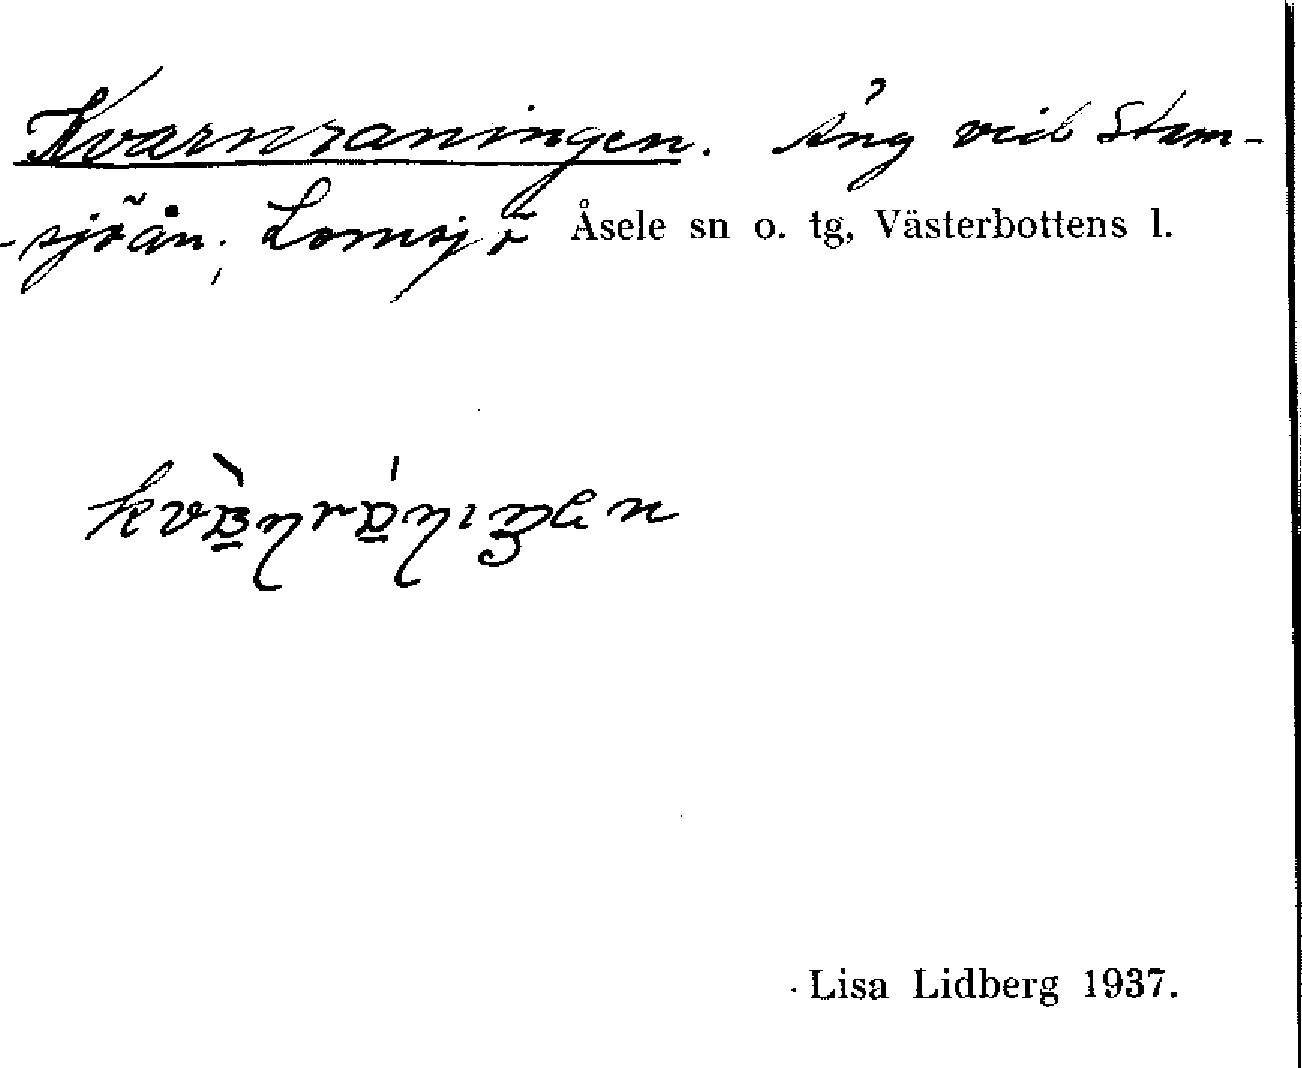 Kvarnraningen. Äng vid Stam-
-sjöån, Lomsjö Åsele sn o. tg, Västerbottens l.
Lisa Lidberg 1937.